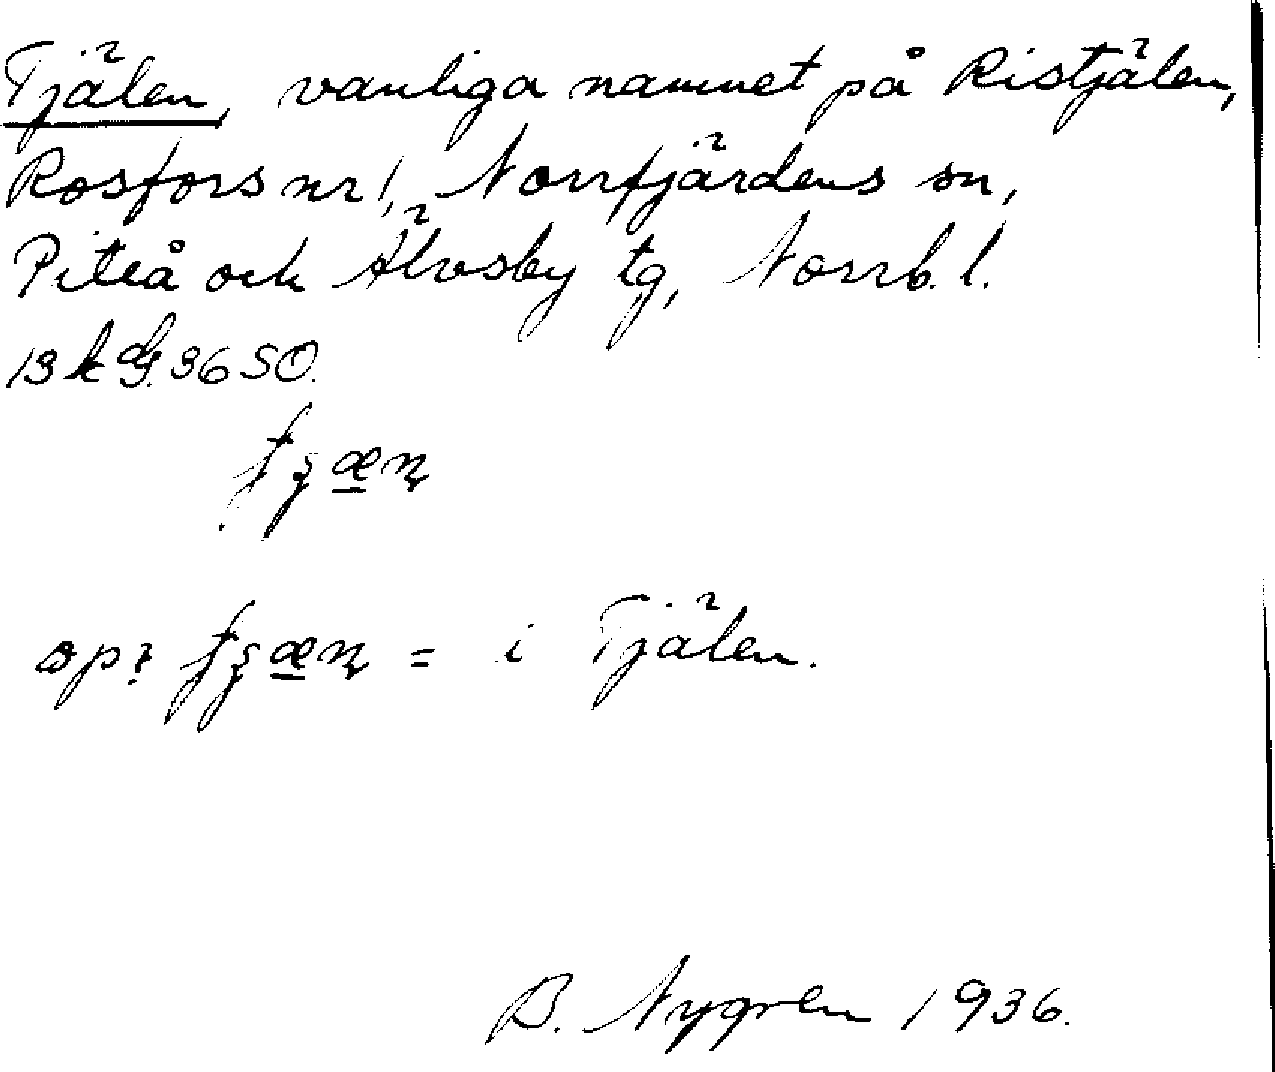 Tjälen, vanliga namnet på Ristjälen,
Rosfors nr 1, Norrfjärdens sn,
Piteå och Älvsby tg, Norrb. l.
3650.
= i Tjälen.
B. Nygren 1936.